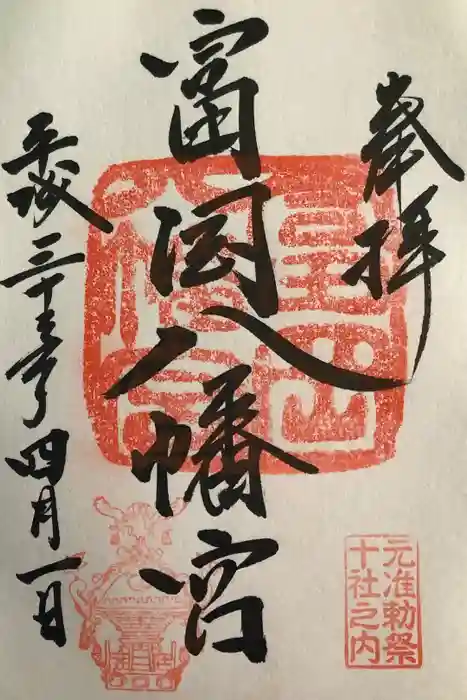 奉拝
富岡八幡宮
平成三十年四月一日
元准勅祭
十社之内